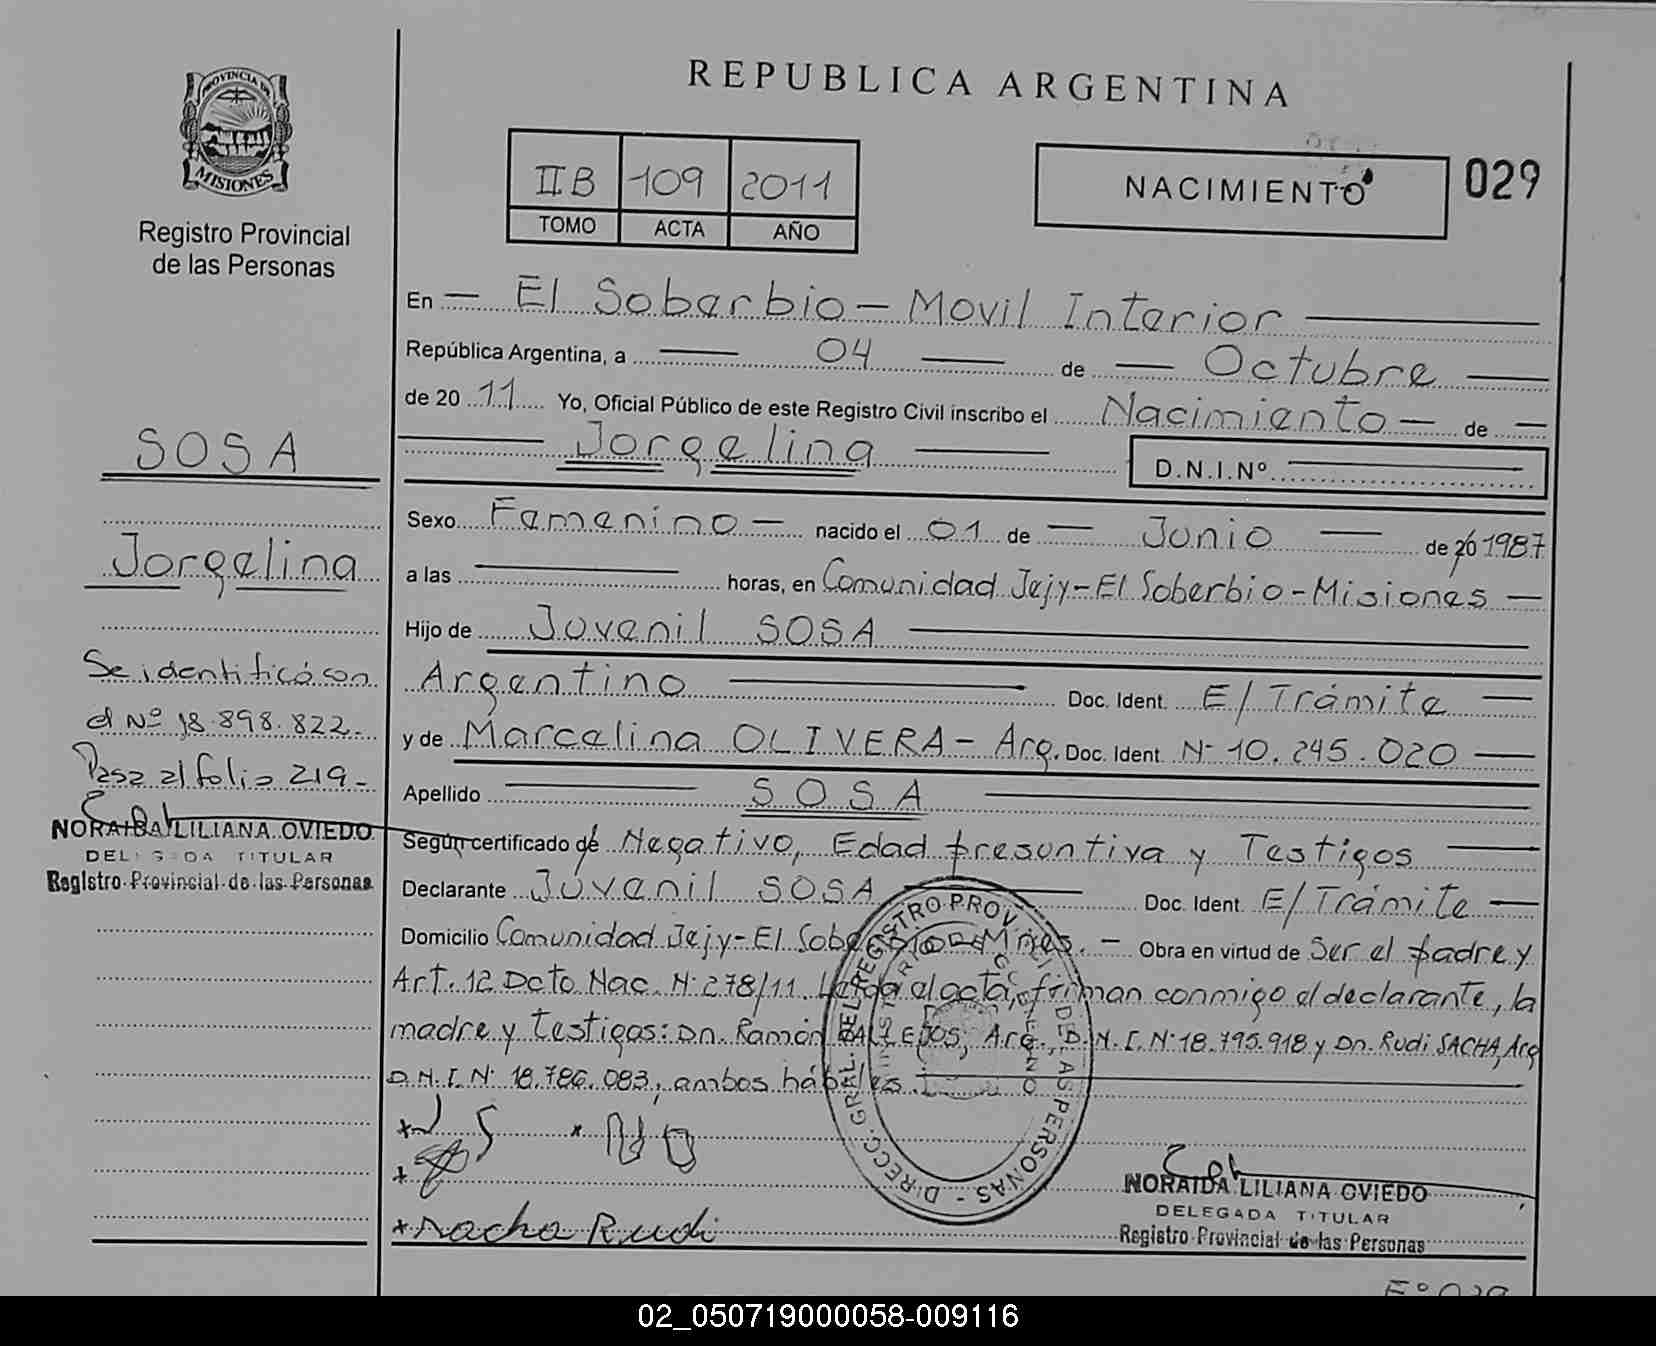 REPUBLICA ARGENTINA
PROVINCIA DE
MISIONES
Registro Provincial
de las Personas
IIB 109 2011
TOMO ACTA AÑO
NACIMIENTO
029
En — El Soberbio — Movil Interior —
República Argentina, a — 04 — de — Octubre —
de 20 11 Yo, Oficial Público de este Registro Civil inscribo el Nacimiento — de —
— Jorgelina —
D.N.I.Nº —
Sexo Femenino — nacido el 01 de — Junio — de 20 1987
a las — horas, en Comunidad Jejy-El Soberbio-Misiones —
Hijo de Juvenil SOSA —
Argentino — Doc. Ident. E/Trámite —
y de Marcelina OLIVERA - Arg. Doc. Ident. Nº 10.245.020 —
Apellido — SOSA —
Según certificado de Negativo, Edad presuntiva y Testigos —
Declarante Juvenil SOSA — Doc. Ident. E/Trámite —
Domicilio Comunidad Jejy-El Soberbio-Mnes. — Obra en virtud de Ser el padre y
Art. 12 Dcto Nac. Nº 278/11. Leída el acta, firman conmigo el declarante, la
madre y testigos: Dn. Ramón Arg. D.N.I. Nº 18.795.918 y Dn. Rudi SACHA, Arg
D.N.I. Nº 18.786.083, ambos hábiles. —
SOSA
Jorgelina
Se identificó con
el Nº 18.898.822.-
Pasa al folio 219.-
NORAIDA LILIANA OVIEDO
DELEGADA TITULAR
Registro Provincial de las Personas
DIRECC. GRAL. DEL REGISTRO PROV. DE LAS PERSONAS
NORAIDA LILIANA OVIEDO
DELEGADA TITULAR
Registro Provincial de las Personas
Rudi
02_050719000058-009116